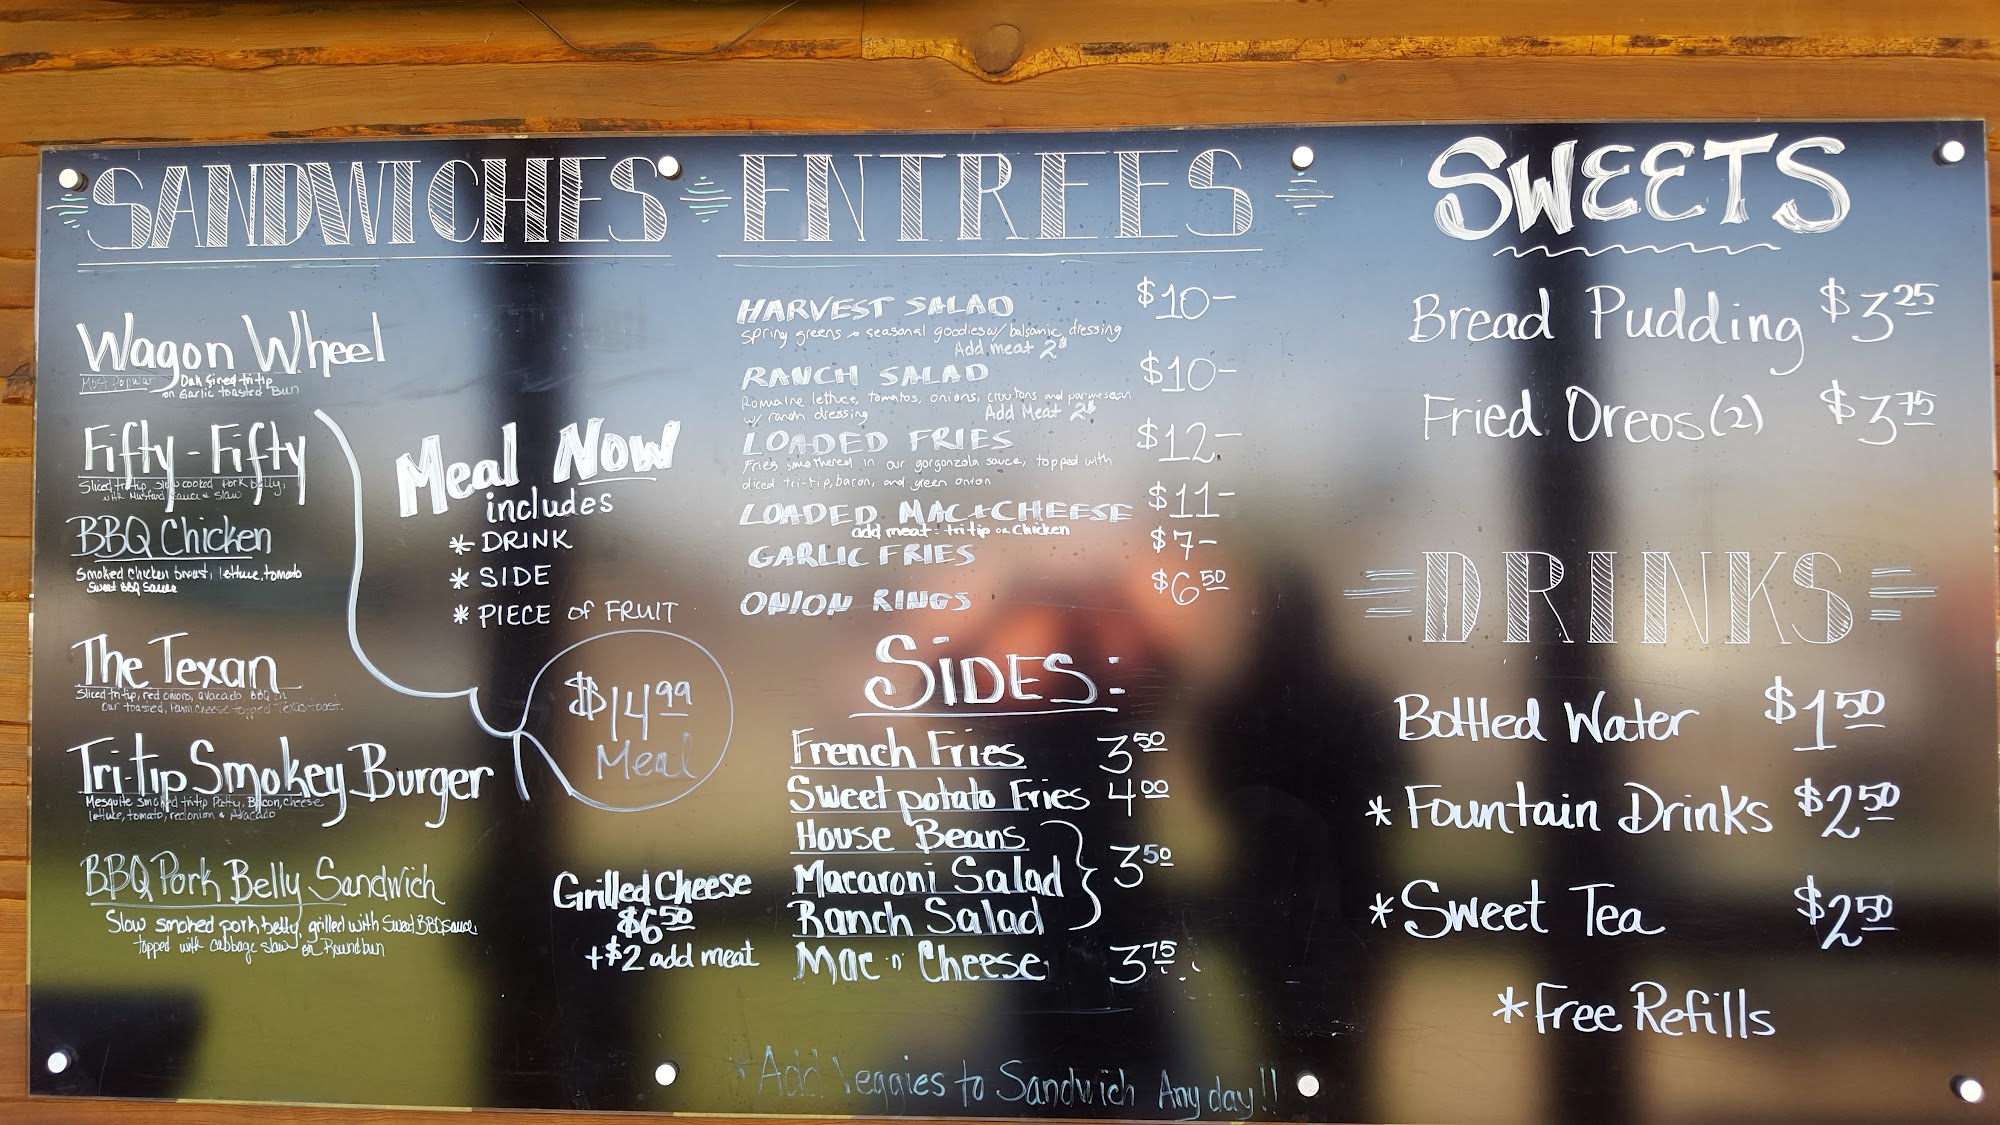 SANDWICHES
Wagon Wheel
Most Popular Oak fired tri tip
on Garlic toasted Bun
Fifty-Fifty
Sliced tri-tip, slow cooked Pork belly,
with Mustard sauce & slaw
BBQ Chicken
Smoked Chicken breast, lettuce, tomato
Sweet BBQ Sauce
The Texan
Sliced tri-tip, red onions, avacado BBQ on
our toasted, Parm cheese topped Texas toast.
Tri-tip Smokey Burger
Mesquite smoked tritip Patty, Bacon, cheese
lettuce, tomato, red onion & Avacado
BBQ Pork Belly Sandwich
Slow smoked pork belly, grilled with Sweet BBQ sauce,
topped with cabbage slaw on Round bun
Meal Now
includes
* DRINK
* SIDE
* PIECE of FRUIT
$14.99
Meal
Grilled Cheese
$6.50
+$2 add meat
ENTREES
HARVEST SALAD $10-
spring greens & seasonal goodies w/ balsamic dressing
Add meat 2$
RANCH SALAD $10-
Romaine lettuce, tomatos, onions, croutons and parmesean
w/ ranch dressing Add Meat 2$
LOADED FRIES $12-
Fries smothered in our gorgonzola sauce, topped with
diced tri-tip, bacon, and green onion
LOADED MAC+CHEESE $11-
add meat: tri tip or Chicken
GARLIC FRIES $7-
ONION RINGS $6.50
SIDES:
French Fries 3.50
Sweet potato Fries 4.00
House Beans
Macaroni Salad 3.50
Ranch Salad
Mac n' Cheese 3.75
*Add Veggies to Sandwich Any day!!
SWEETS
Bread Pudding $3.25
Fried Oreos (2) $3.75
DRINKS
Bottled Water $1.50
* Fountain Drinks $2.50
* Sweet Tea $2.50
* Free Refills